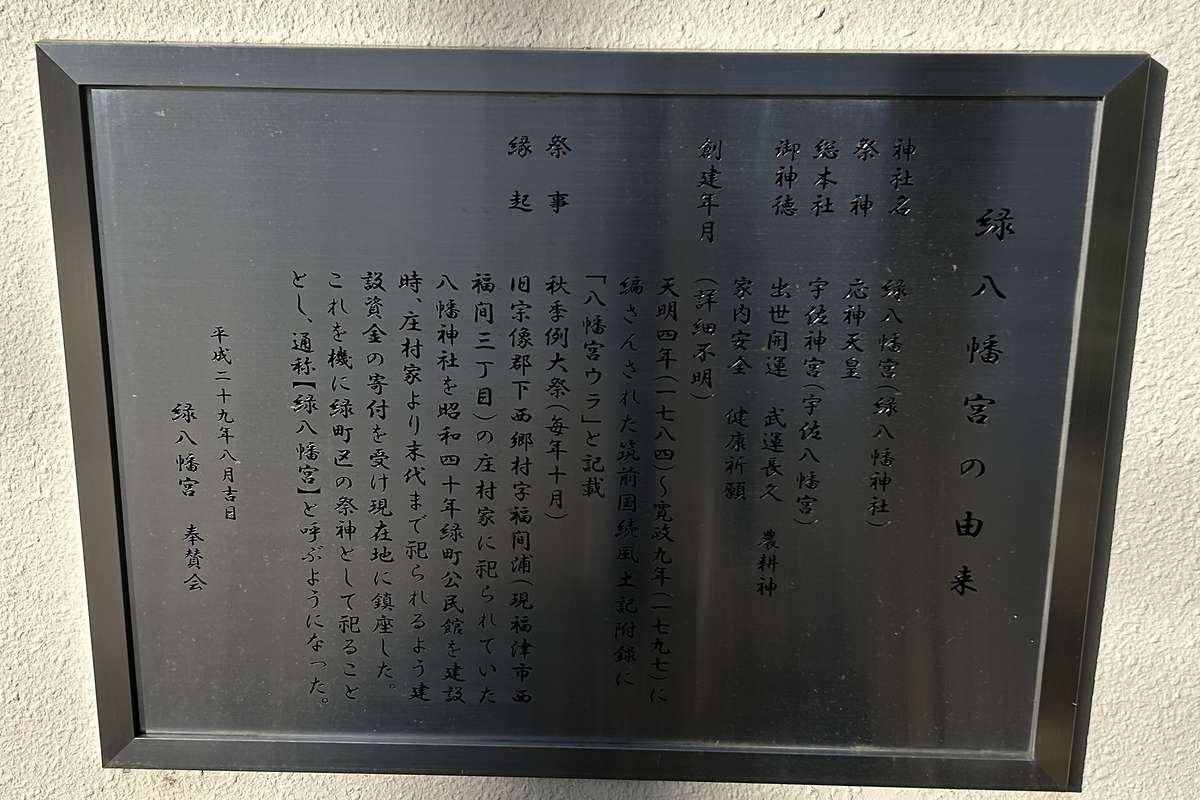 緑八幡宮の由来
神社名　緑八幡宮(緑八幡神社)
祭神　応神天皇
総本社　宇佐神宮(宇佐八幡宮)
御神徳　出世開運　武運長久　農耕神
家内安全　健康祈願
創建年月　(詳細不明)
天明四年(一七八四)～寛政九年(一七九七)に
編さんされた筑前国続風土記附録に
「八幡宮ウラ」と記載
祭事　秋季例大祭(毎年十月)
縁起　旧宗像郡下西郷村字福間浦(現福津市西
福間三丁目)の庄村家に祀られていた
八幡神社を昭和四十年緑町公民館を建設
時、庄村家より末代まで祀られるよう建
設資金の寄付を受け現在地に鎮座した。
これを機に緑町区の祭神として祀ること
とし、通称【緑八幡宮】と呼ぶようになった。
平成二十九年八月吉日
緑八幡宮　奉賛会